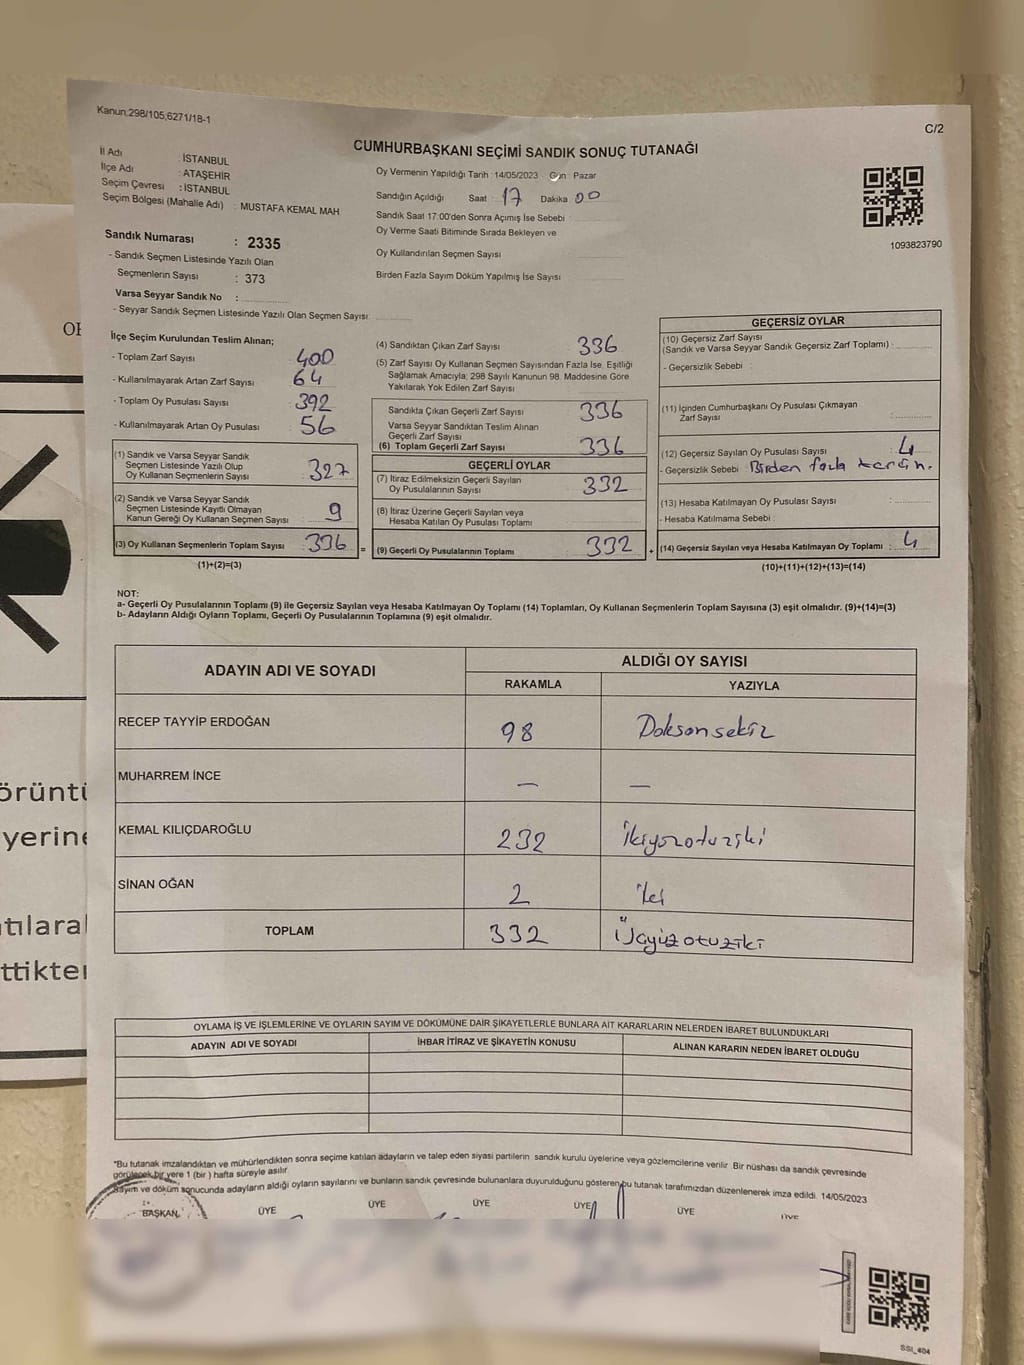 Kanun;298/105,6271/18-1
C/2
CUMHURBAŞKANI SEÇİMİ SANDIK SONUÇ TUTANAĞI
İl Adı : İSTANBUL
İlçe Adı : ATAŞEHİR
Seçim Çevresi : İSTANBUL
Seçim Bölgesi (Mahalle Adı) : MUSTAFA KEMAL MAH
Sandık Numarası : 2335
- Sandık Seçmen Listesinde Yazılı Olan
Seçmenlerin Sayısı : 373
Varsa Seyyar Sandık No :
- Seyyar Sandık Seçmen Listesinde Yazılı Olan Seçmen Sayısı
Oy Vermenin Yapıldığı Tarih : 14/05/2023 Gün : Pazar
Sandığın Açıldığı Saat : 17 Dakika 00
Sandık Saat 17:00'den Sonra Açımış İse Sebebi :
Oy Verme Saati Bitiminde Sırada Bekleyen ve
Oy Kullandırılan Seçmen Sayısı
Birden Fazla Sayım Döküm Yapılmış İse Sayısı
1093823790
İlçe Seçim Kurulundan Teslim Alınan;
- Toplam Zarf Sayısı 400
- Kullanılmayarak Artan Zarf Sayısı 64
- Toplam Oy Pusulası Sayısı 392
- Kullanılmayarak Artan Oy Pusulası 56
(1) Sandık ve Varsa Seyyar Sandık
Seçmen Listesinde Yazılı Olup
Oy Kullanan Seçmenlerin Sayısı 327
(2) Sandık ve Varsa Seyyar Sandık
Seçmen Listesinde Kayıtlı Olmayan
Kanun Gereği Oy Kullanan Seçmen Sayısı 9
(3) Oy Kullanan Seçmenlerin Toplam Sayısı 336 =
(1)+(2)=(3)
(4) Sandıktan Çıkan Zarf Sayısı 336
(5) Zarf Sayısı Oy Kullanan Seçmen Sayısından Fazla İse, Eşitliği
Sağlamak Amacıyla; 298 Sayılı Kanunun 98. Maddesine Göre
Yakılarak Yok Edilen Zarf Sayısı
Sandıkta Çıkan Geçerli Zarf Sayısı 336
Varsa Seyyar Sandıktan Teslim Alınan
Geçerli Zarf Sayısı
(6) Toplam Geçerli Zarf Sayısı 336
GEÇERLİ OYLAR
(7) İtiraz Edilmeksizin Geçerli Sayılan
Oy Pusulalarının Sayısı 332
(8) İtiraz Üzerine Geçerli Sayılan veya
Hesaba Katılan Oy Pusulası Toplamı
(9) Geçerli Oy Pusulalarının Toplamı 332 +
GEÇERSİZ OYLAR
(10) Geçersiz Zarf Sayısı
(Sandık ve Varsa Seyyar Sandık Geçersiz Zarf Toplamı) :
- Geçersizlik Sebebi :
(11) İçinden Cumhurbaşkanı Oy Pusulası Çıkmayan
Zarf Sayısı :
(12) Geçersiz Sayılan Oy Pusulası Sayısı : 4
- Geçersizlik Sebebi : Birden fazla tercih.
(13) Hesaba Katılmayan Oy Pusulası Sayısı :
- Hesaba Katılmama Sebebi :
(14) Geçersiz Sayılan veya Hesaba Katılmayan Oy Toplamı : 4
(10)+(11)+(12)+(13)=(14)
NOT:
a- Geçerli Oy Pusulalarının Toplamı (9) ile Geçersiz Sayılan veya Hesaba Katılmayan Oy Toplamı (14) Toplamları, Oy Kullanan Seçmenlerin Toplam Sayısına (3) eşit olmalıdır. (9)+(14)=(3)
b- Adayların Aldığı Oyların Toplamı, Geçerli Oy Pusulalarının Toplamına (9) eşit olmalıdır.
ADAYIN ADI VE SOYADI ALDIĞI OY SAYISI
RAKAMLA YAZIYLA
RECEP TAYYİP ERDOĞAN 98 Doksansekiz
MUHARREM İNCE — —
KEMAL KILIÇDAROĞLU 232 İkiyüzotuziki
SİNAN OĞAN 2 İki
TOPLAM 332 Üçyüzotuziki
OYLAMA İŞ VE İŞLEMLERİNE VE OYLARIN SAYIM VE DÖKÜMÜNE DAİR ŞİKAYETLERLE BUNLARA AİT KARARLARIN NELERDEN İBARET BULUNDUKLARI
ADAYIN ADI VE SOYADI İHBAR İTİRAZ VE ŞİKAYETİN KONUSU ALINAN KARARIN NEDEN İBARET OLDUĞU
"Bu tutanak imzalandıktan ve mühürlendikten sonra seçime katılan adayların ve talep eden siyasi partilerin sandık kurulu üyelerine veya gözlemcilerine verilir. Bir nüshası da sandık çevresinde
görülecek bir yere 1 (bir) hafta süreyle asılır.
Sayım ve döküm sonucunda adayların aldığı oyların sayılarını ve bunların sandık çevresinde bulunanlara duyurulduğunu gösteren bu tutanak tarafımızdan düzenlenerek imza edildi. 14/05/2023
BAŞKAN ÜYE ÜYE ÜYE ÜYE ÜYE ÜYE
SSI_404
örüntü
yerine
tılara
ttikte